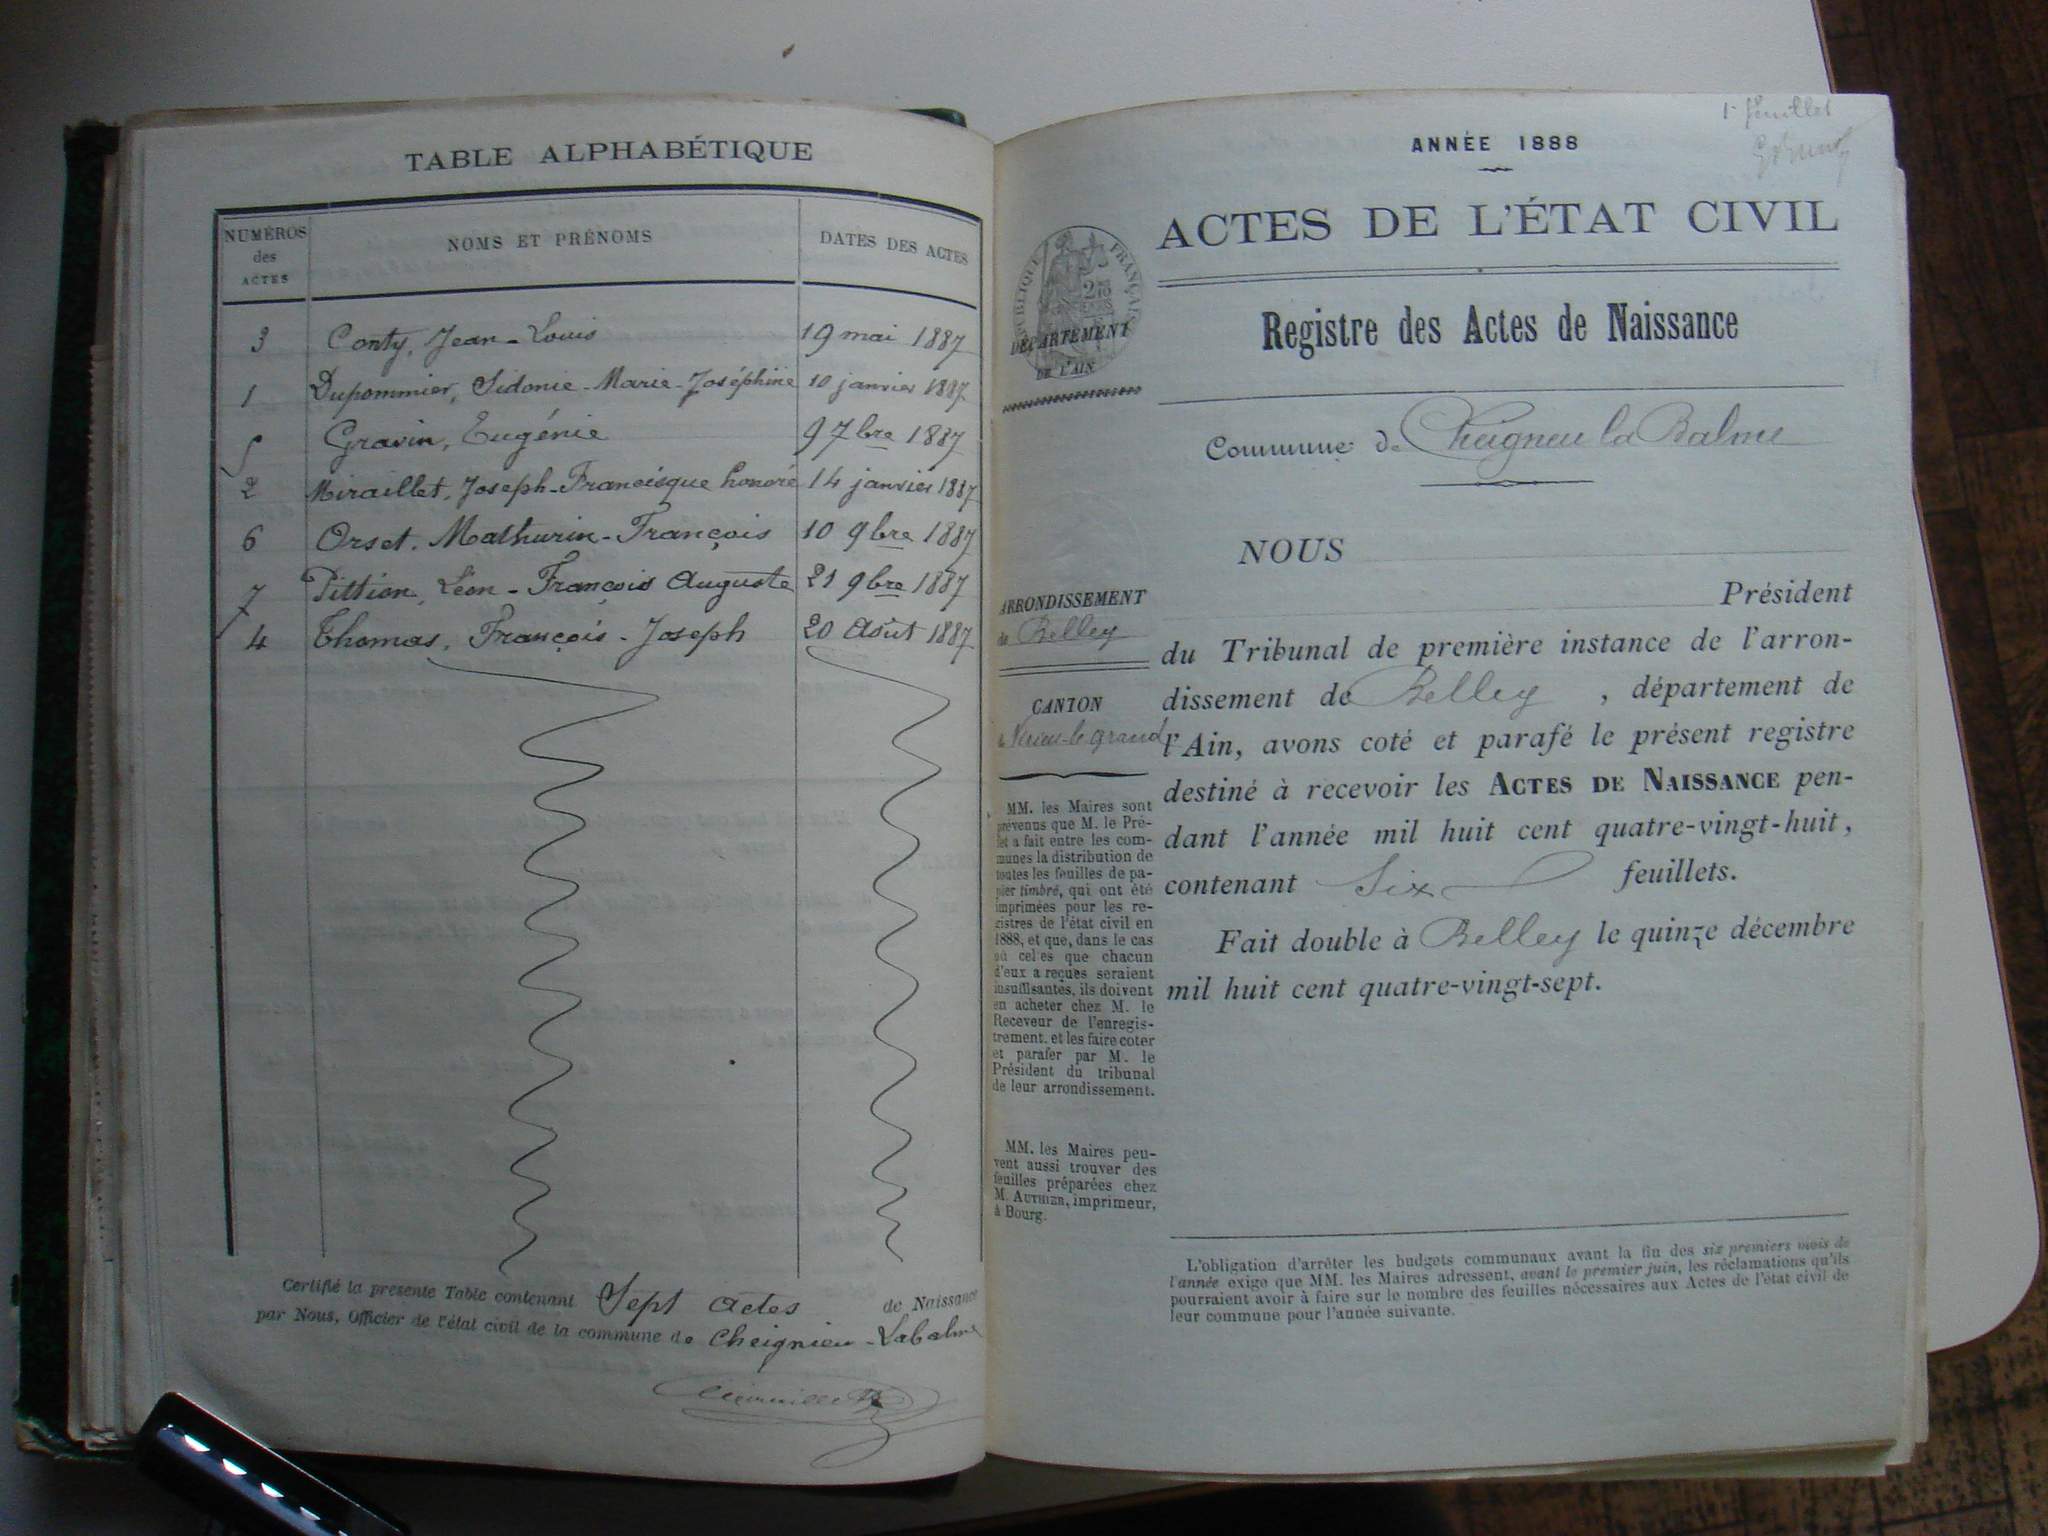 TABLE ALPHABÉTIQUE
NUMÉROS des ACTES NOMS ET PRÉNOMS DATES DES ACTES
3 Conty, Jean-Louis 19 mai 1887
1 Dupommier, Sidonie-Marie-Joséphine 10 janvier 1887
5 Gravin, Eugénie 9 7bre 1887
2 Miraillet, Joseph-Francisque honoré 14 janvier 1887
6 Orset, Mathurin-François 10 9bre 1887
7 Pittion, Léon-François Auguste 21 9bre 1887
4 Thomas, François-Joseph 20 Août 1887
Certifié la présente Table contenant Sept actes de Naissance
par Nous, Officier de l'état civil de la commune de Cheignieu-Labalme
1r feuillet
ANNÉE 1888
ACTES DE L'ÉTAT CIVIL
RÉPUBLIQUE FRANÇAISE
DÉPARTEMENT
DE L'AIN
Registre des Actes de Naissance
Commune de Cheigneu la Balme
ARRONDISSEMENT
de Belley
CANTON
de Virieu-le grand
MM. les Maires sont
prévenus que M. le Pré-
fet a fait entre les com-
munes la distribution de
toutes les feuilles de pa-
pier timbré, qui ont été
imprimées pour les re-
gistres de l'état civil en
1888, et que, dans le cas
où celles que chacun
d'eux a reçues seraient
insuffisantes, ils doivent
en acheter chez M. le
Receveur de l'enregis-
trement, et les faire coter
et parafer par M. le
Président du tribunal
de leur arrondissement.
MM. les Maires peu-
vent aussi trouver des
feuilles préparées chez
M. AUTHIER, imprimeur,
à Bourg.
NOUS
Président
du Tribunal de première instance de l'arron-
dissement de Belley, département de
l'Ain, avons coté et parafé le présent registre
destiné à recevoir les ACTES DE NAISSANCE pen-
dant l'année mil huit cent quatre-vingt-huit,
contenant Six feuillets.
Fait double à Belley le quinze décembre
mil huit cent quatre-vingt-sept.
L'obligation d'arrêter les budgets communaux avant la fin des six premiers mois de
l'année exige que MM. les Maires adressent, avant le premier juin, les réclamations qu'ils
pourraient avoir à faire sur le nombre des feuilles nécessaires aux Actes de l'état civil de
leur commune pour l'année suivante.